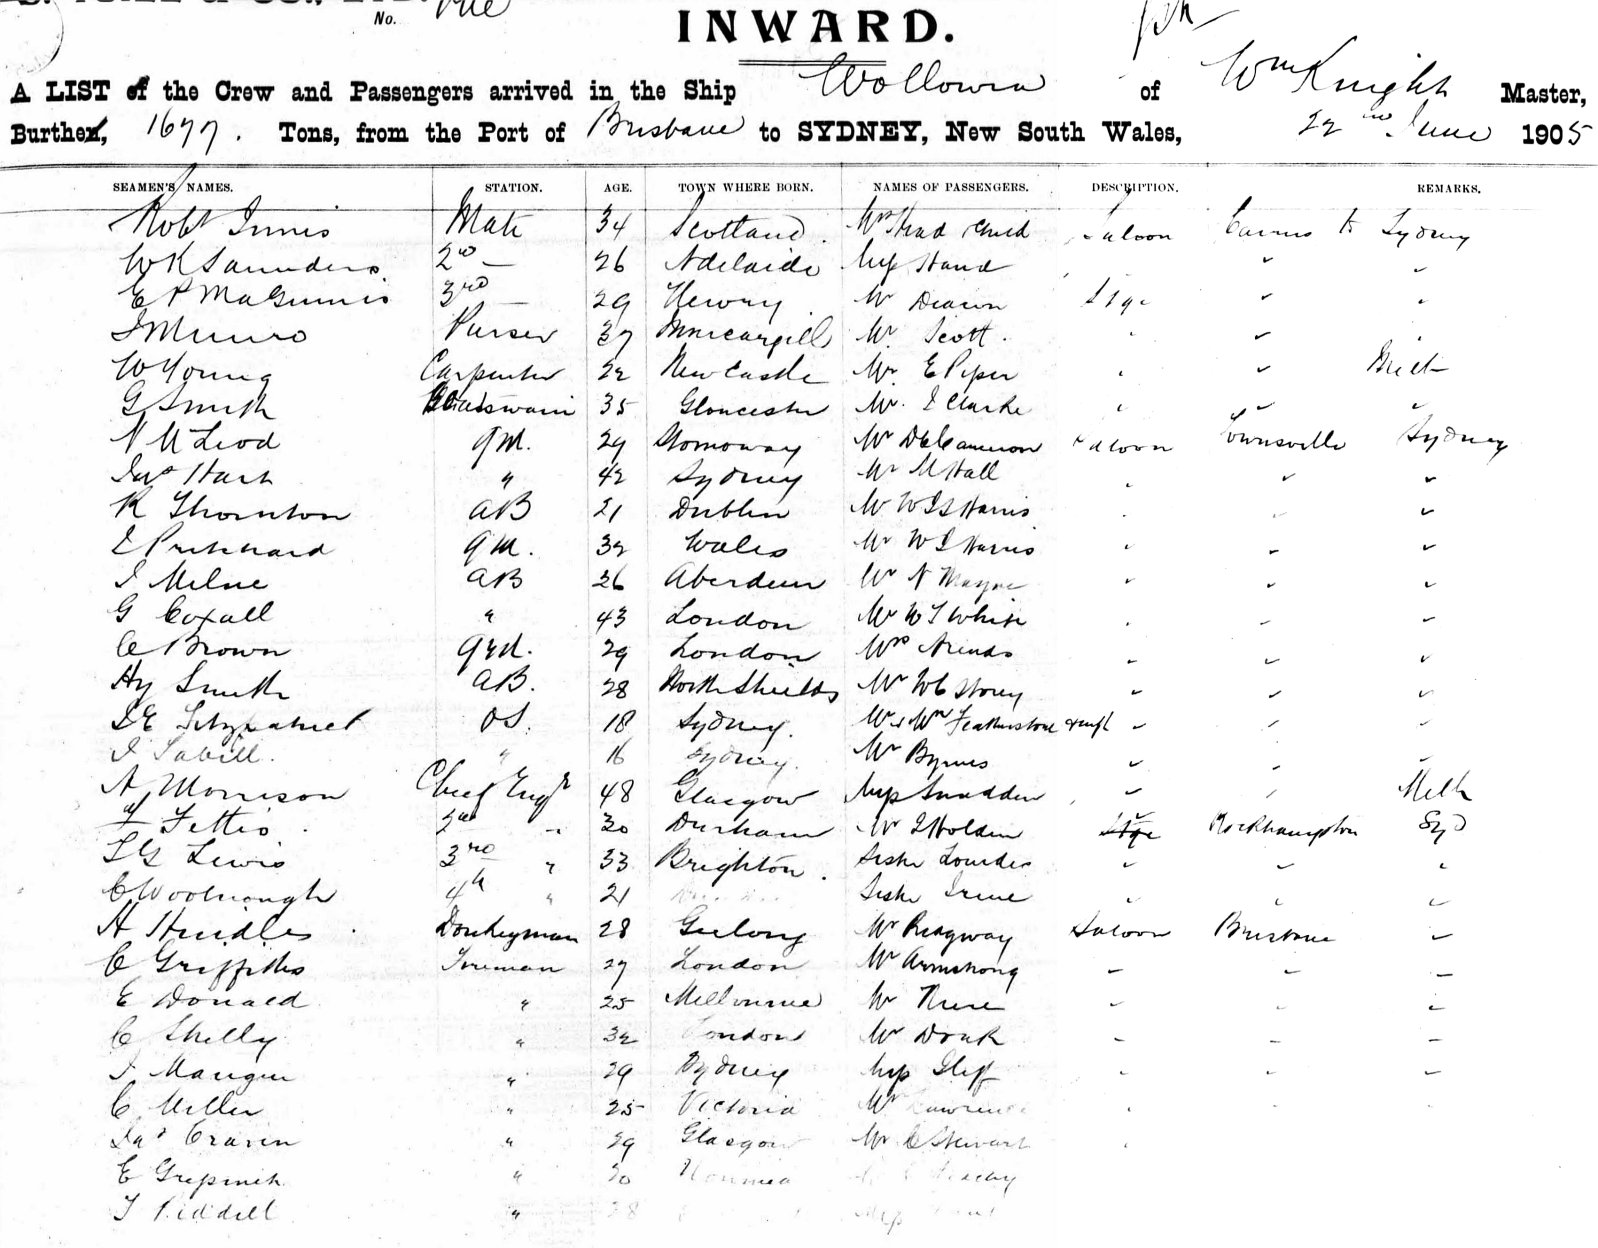 No.
INWARD.
A LIST of the Crew and Passengers arrived in the Ship Wollowra of Wm Knight Master,
Burthen, 1677. Tons, from the Port of Brisbane to SYDNEY, New South Wales, 22nd June 1905
SEAMEN'S NAMES. STATION. AGE. TOWN WHERE BORN. NAMES OF PASSENGERS. DESCRIPTION. REMARKS.
Robt Innis Mate 34 Scotland. Mrs Head child Saloon Cairns to Sydney
W K Saunders 2nd — 26 Adelaide Miss Hand " "
E P MaGinnis 3rd — 29 Newry Mr Deacon Stge " "
J Munro Purser 37 Invercargill Mr. Scott. " " "
W Young Carpenter 22 New Castle Mr. E Piper " "
G Smith Boatswain 35 Gloucester Mr. J Clarke " " "
N McLeod qm. 29 Stornoway Mr D C Cameron Saloon Townsville Sydney
Jas Hart " 42 Sydney Mr M Hall " " "
R Thornton AB 21 Dublin Mr W J S Harris " " "
E Pritchard qm. 32 Wales Mr W J Harris " " "
J Milne AB 26 Aberdeen Mr N Mayne " " "
G Coxall " 43 London Mr W J White " " "
C Brown qm. 29 London Mrs " " "
Hy Smith AB. 28 North Shields Mr W C Storey " " "
Fitzpatrick OS. 18 Sydney. Mr & Mrs Featherstone & inft " " "
J " 16 Sydney. Mr Byrnes " " "
A Morrison Chief Engr 48 Glasgow Miss Snadden " " Melb
Fettis. 2nd " 30 Durham Mr J Holden Stge Rockhampton Syd
Lewis 3rd " 33 Brighton. Sister Lourdes " " "
C Woolnough 4th " 21 Sister Irene " " "
H Hindles Donkeyman 28 Geelong Mr Ridgway Saloon Brisbane "
C Griffiths Fireman 27 London Mr Armstrong " " "
E Donald " 25 Melbourne Mr " " "
C Shelly " 32 London Mr " " "
J Mangin " 29 Sydney Miss " " "
C Miller " 25 Victoria Mr Lawrence "
Jas Craven " 29 Glasgow Mr C Stewart "
E " 20 Noumea
T Riddell " 28 Miss